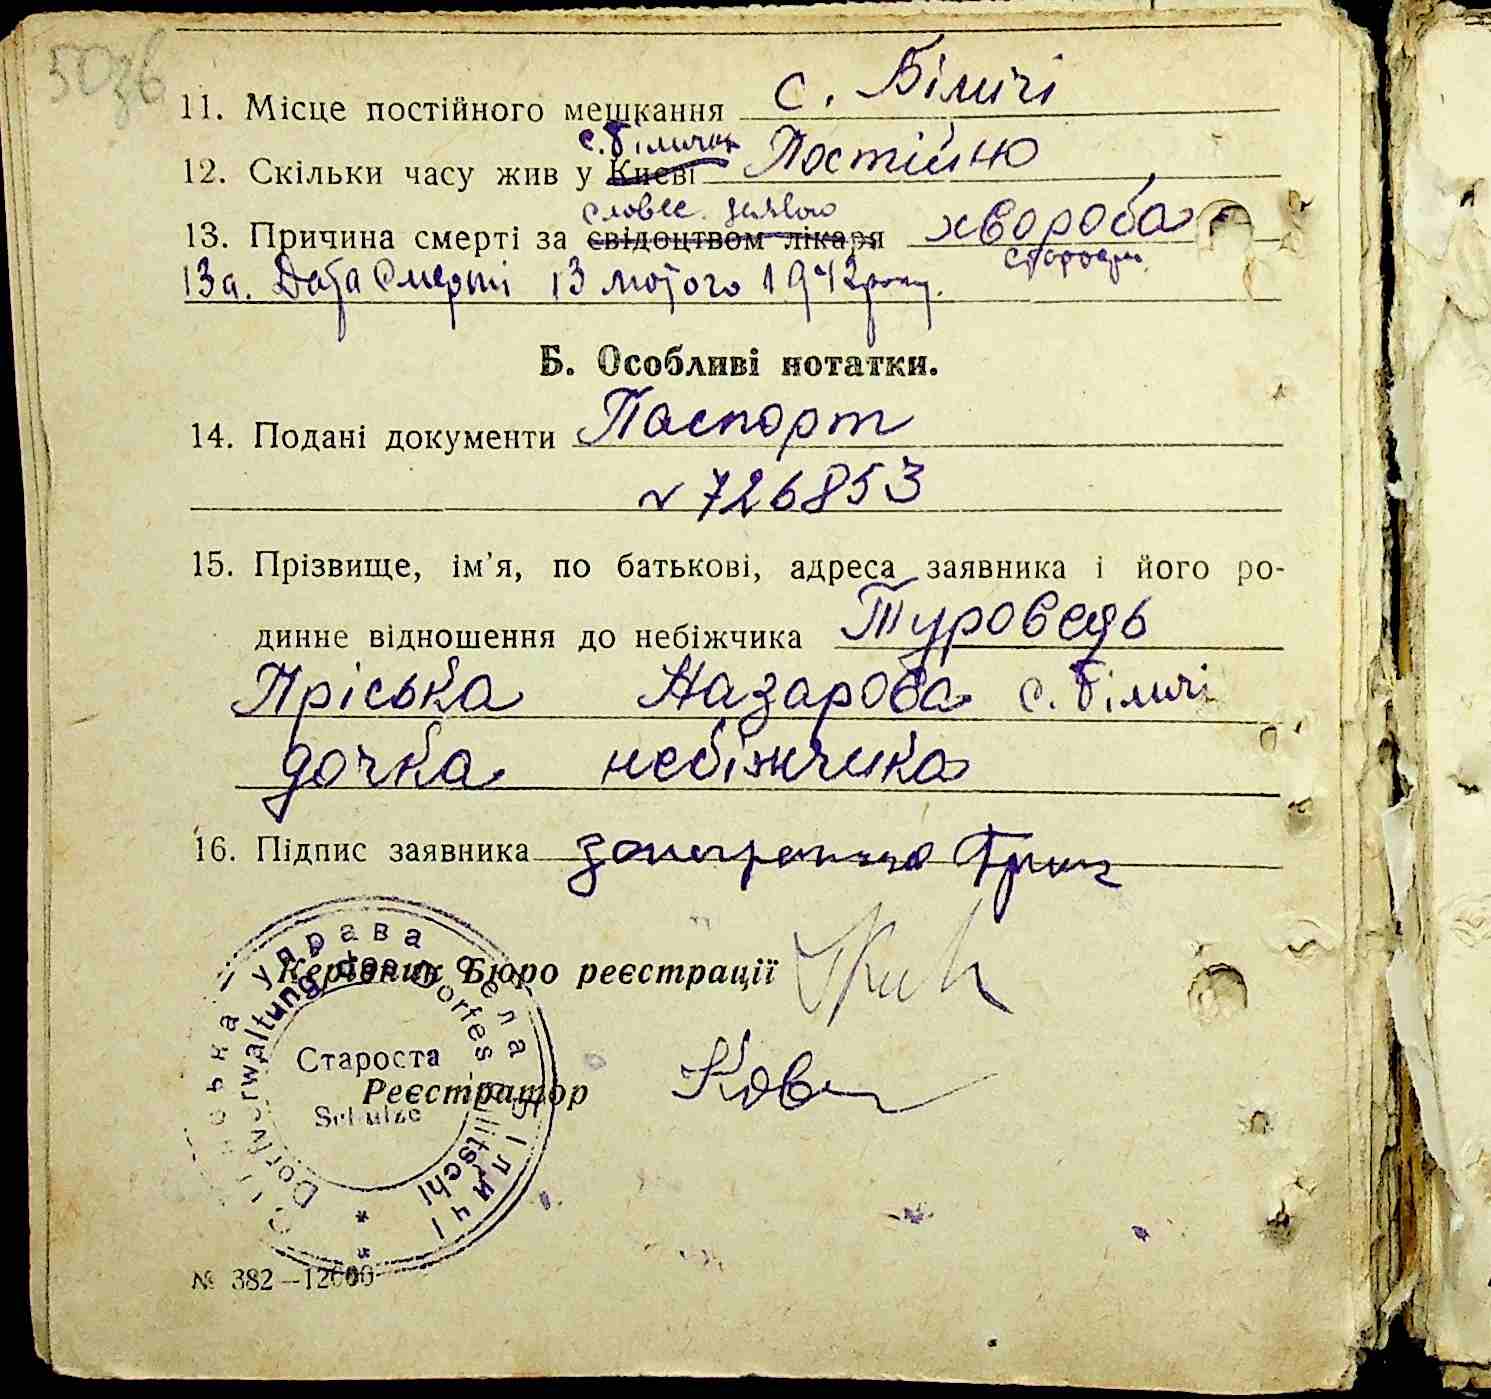 50зв
11. Місце постійного мешкання с. Біличі
с. Біличах
12. Скільки часу жив у Києві Постійно
словес. заявою
13. Причина смерті за свідоцтвом лікаря хвороба
старости
13а. Дата смерті 13 лютого 1942 року.
Б. Особливі нотатки.
14. Подані документи Паспорт
№ 726853
15. Прізвище, ім’я, по батькові, адреса заявника і його ро-
динне відношення до небіжчика Туроведь
Пріська Назарова с. Біличі
дочка небіжчика
16. Підпис заявника
Керівник Бюро реєстрації
Реєстратор
Сільська управа села Біличі
Dorfverwaltung des Dorfes Bilitschi
Староста
Schulze
№ 382—12000